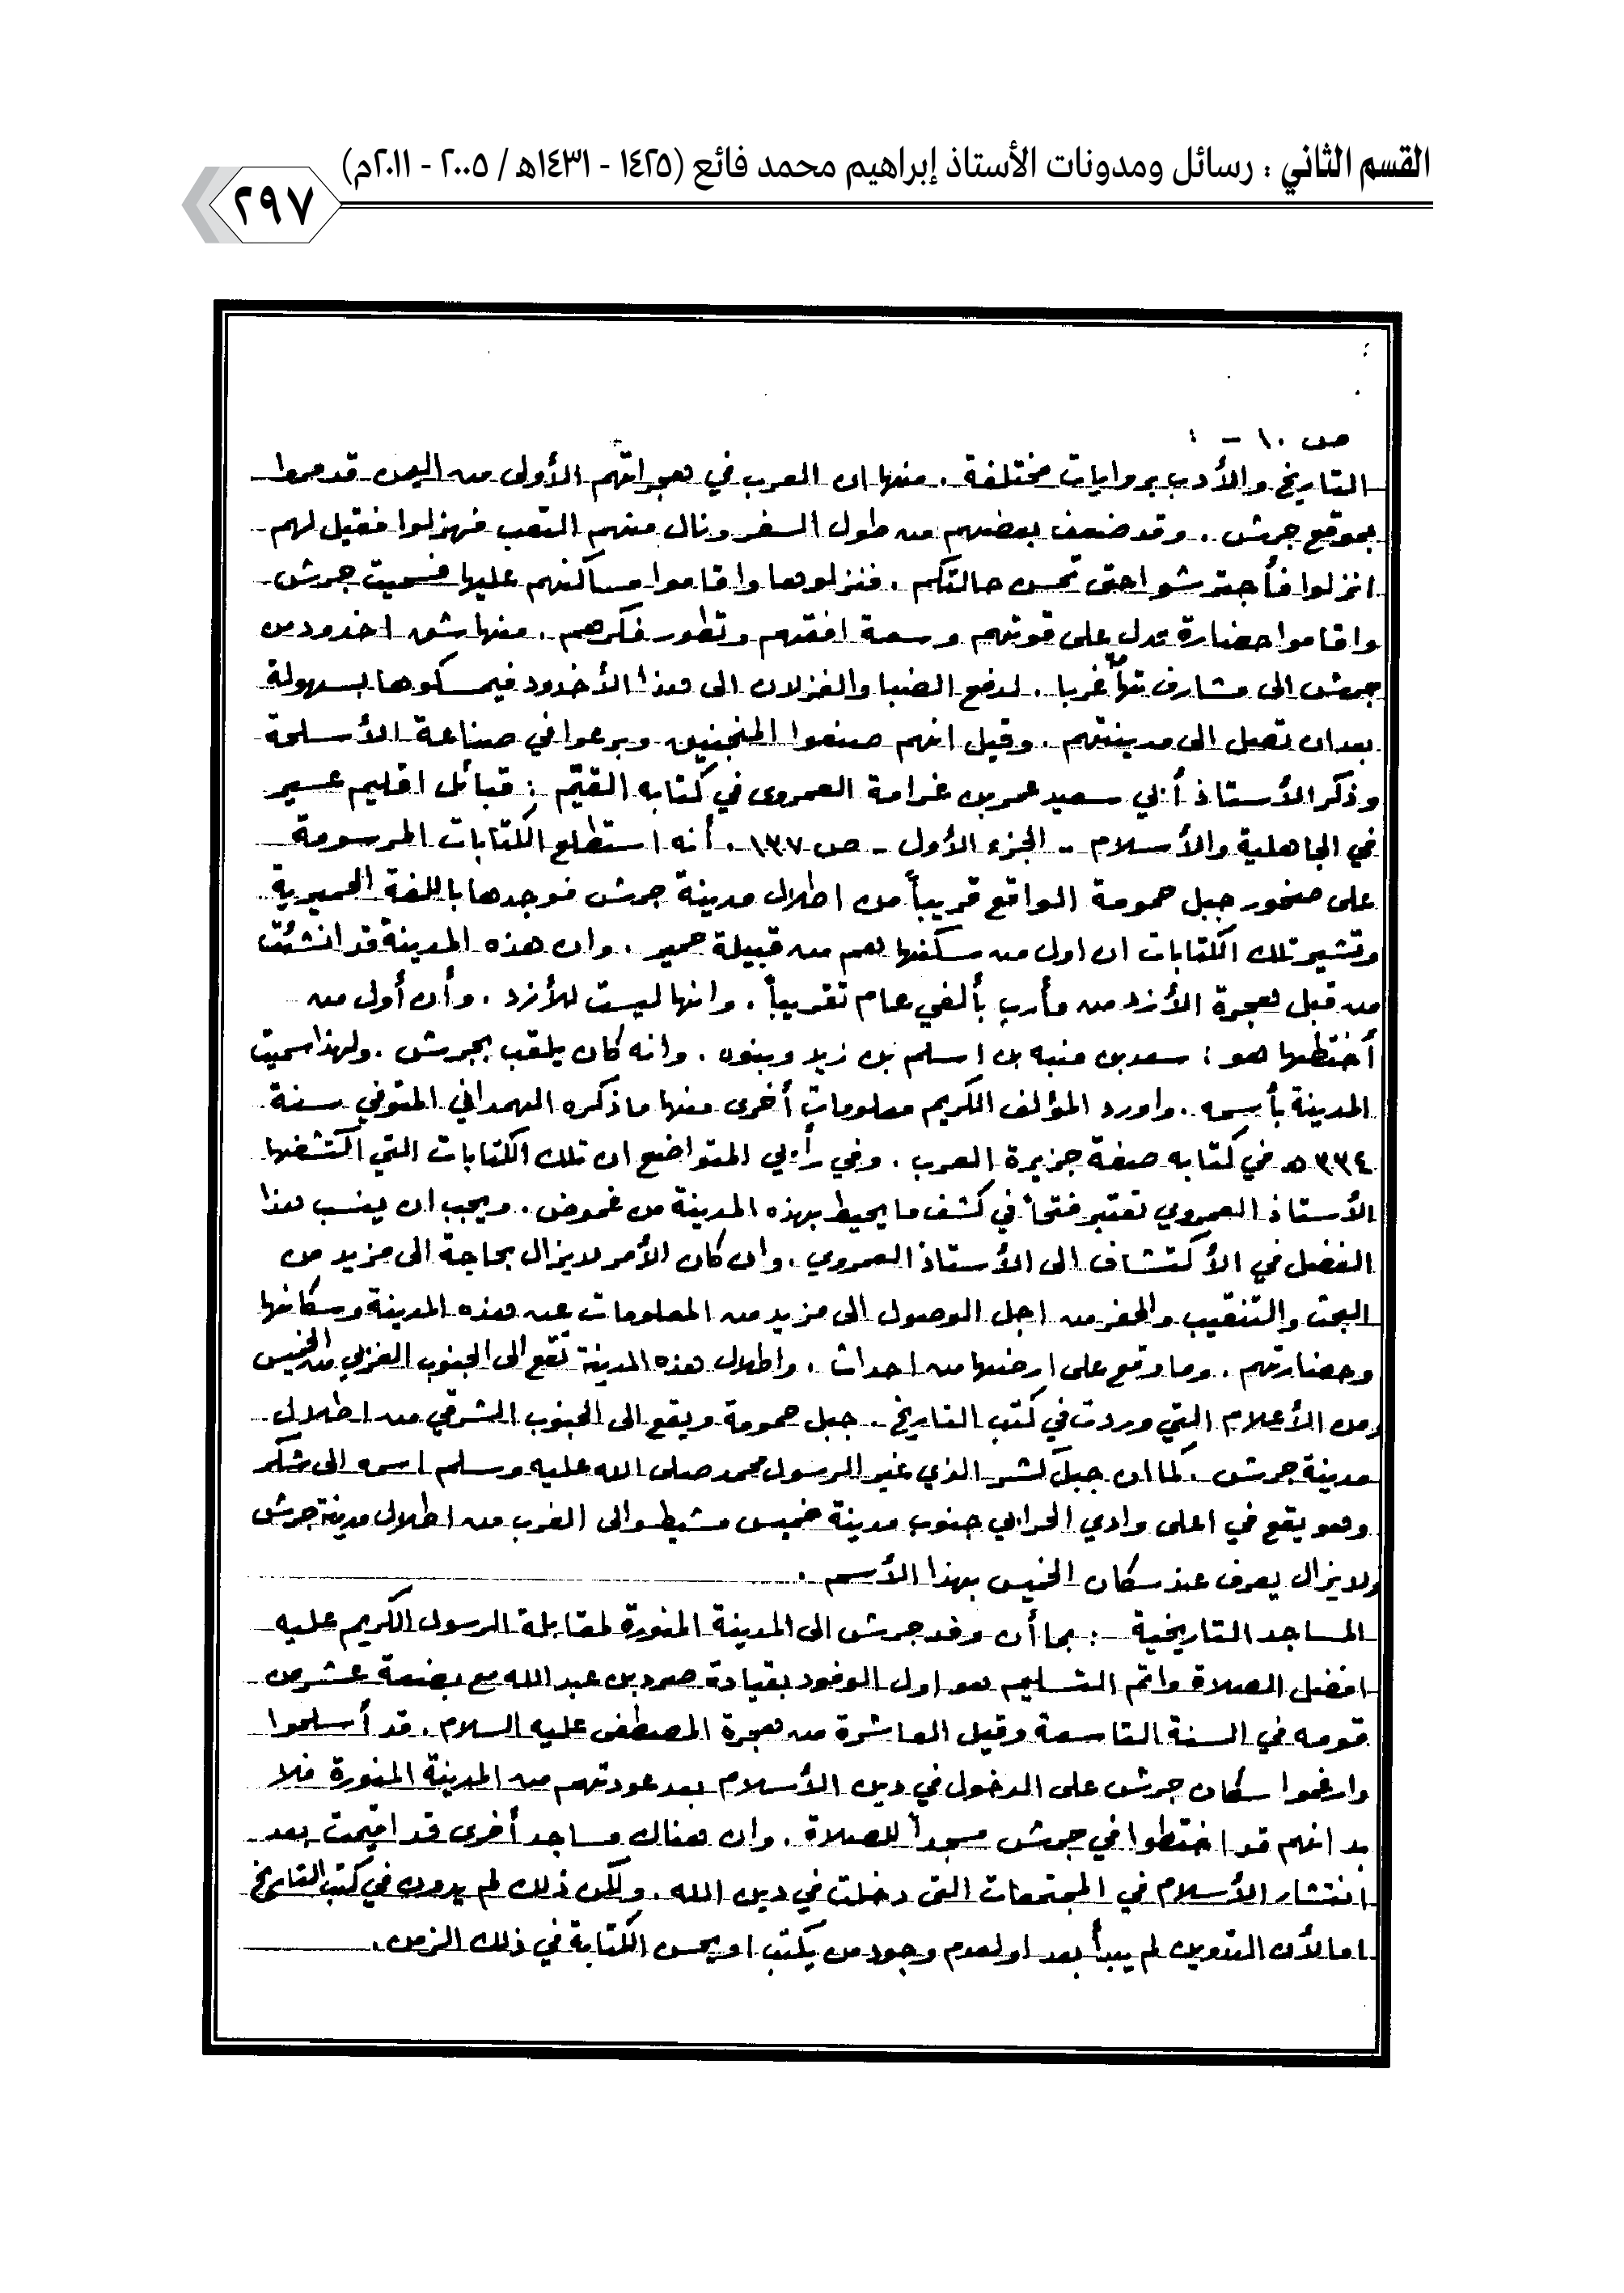 القسم الثاني : رسائل ومدونات الأستاذ إبراهيم محمد فائع (١٤٢٥ - ١٤٣١هـ / ٢٠٠٥ - ٢٠١١م)
٢٩٧
ص ١٠ - :
التاريخ والأدب بروايات مختلفة . منها ان العرب في هجراتهم الأولى من اليمن قد مروا
بموقع جرش . وقد ضعف بعضهم من طول السفر ونال منهم التعب فهزلوا فقيل لهم
انزلوا فأجترشوا حتى تحسن حالتكم . فنزلوها واقاموا مساكنهم عليها فسميت جرش
واقاموا حضارة تدل على قوتهم وسعة افقهم وتطور فكرهم . منها شق اخدود من
جرش الى مشارف تهامة غربا . لدفع الضبا والغزلان الى هذا الأخدود فيمسكوها بسهولة
بعد ان تصل الى مدينتهم . وقيل انهم صنعوا المنجنيق وبرعوا في صناعة الأسلحة
وذكر الأستاذ أبي سعيد عمر بن غرامة العمروي في كتابه القيّم : قبائل اقليم عسير
في الجاهلية والأسلام - الجزء الأول - ص ١٣٧ . أنه استطلع الكتابات المرسومة
على صخور جبل حمومة الواقع قريباً من اطلال مدينة جرش فوجدها باللغة الحميرية
وتشير تلك الكتابات ان اول من سكنها هم من قبيلة حمير . وان هذه المدينة قد انشئت
من قبل هجرة الأزد من مأرب بألفي عام تقريباً . وانها ليست للأزد . وأن أول من
أختطها هو : سعد بن منبه بن اسلم بن زيد وبنوه . وانه كان يلقب بجرش . ولهذا سميت
المدينة بأسمه . واورد المؤلف الكريم معلومات أخرى منها ما ذكره الهمداني المتوفي سنة
٣٣٤ هـ في كتابه صفة جزيرة العرب . وفي رأيي المتواضع ان تلك الكتابات التي اكتشفها
الأستاذ العمروي تعتبر فتحاً في كشف ما يحيط بهذه المدينة من غموض . ويجب ان ينسب هذا
الفضل في الأكتشاف الى الأستاذ العمروي . وان كان الأمر لايزال بحاجة الى مزيد من
البحث والتنقيب والحفر من اجل الوصول الى مزيد من المعلومات عن هذه المدينة وسكانها
وحضارتهم . وما وقع على ارضها من احداث . واطلال هذه المدينة تقع الى الجنوب الغربي من الخميس
ومن الأعلام التي وردت في كتب التاريخ . جبل حمومة ويقع الى الجنوب الشرقي من اطلال
مدينة جرش . كما ان جبل كشر الذي غير الرسول محمد صلى الله عليه وسلم اسمه الى شكر
وهو يقع في اعلى وادي الحرابي جنوب مدينة خميس مشيط والى الغرب من اطلال مدينة جرش
ولايزال يعرف عند سكان الخميس بهذا الأسم .
المساجد التاريخية : بما أن وفد جرش الى المدينة المنورة لمقابلة الرسول الكريم عليه
افضل الصلاة واتم التسليم هو اول الوفود بقيادة صرد بن عبد الله مع بضعة عشر من
قومه في السنة التاسعة وقيل العاشرة من هجرة المصطفى عليه السلام . قد أسلموا
وارغموا سكان جرش على الدخول في دين الأسلام بعد عودتهم من المدينة المنورة فلا
بد انهم قد اختطوا في جرش مسجداً للصلاة . وان هناك مساجد أخرى قد اقيمت بعد
انتشار الأسلام في المجتمعات التى دخلت في دين الله . ولكن ذلك لم يدون في كتب التاريخ
اما لأن التدوين لم يبدأ بعد او لعدم وجود من يكتب او يحسن الكتابة في ذلك الزمن .